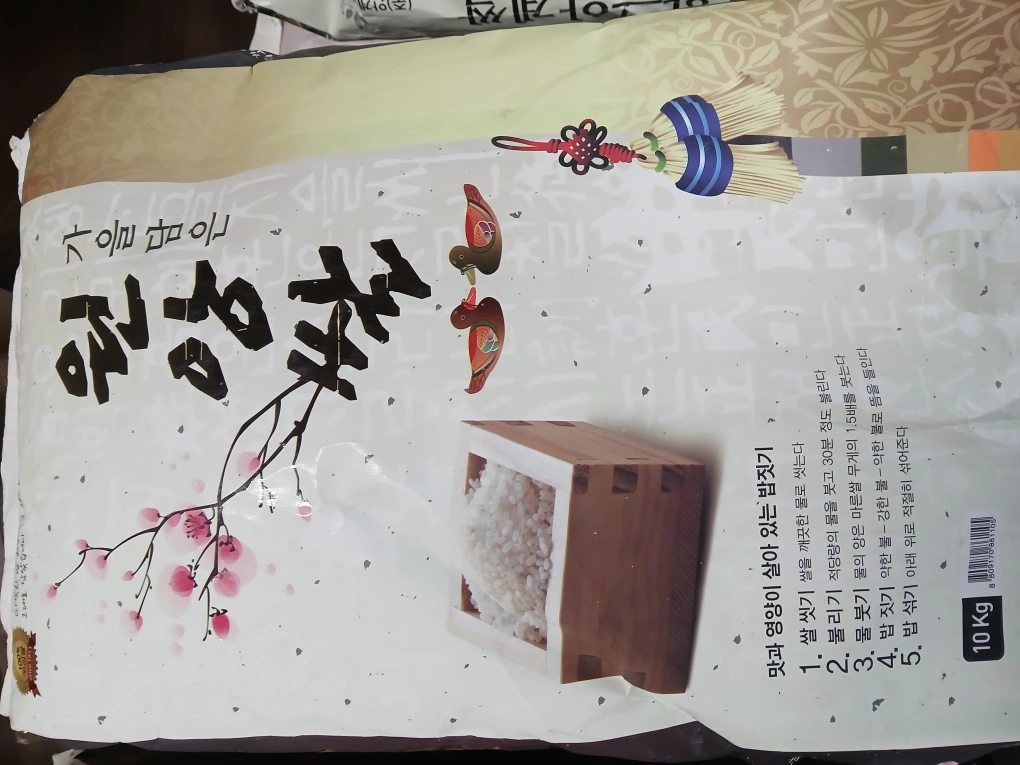 가을 담은
원앙쌀
맛과 영양이 살아 있는 밥짓기
1. 쌀 씻기 쌀을 깨끗한 물로 씻는다
2. 불리기 적당량의 물을 붓고 30분 정도 불린다
3. 물 붓기 물의 양은 마른쌀 무게의 1.5배를 붓는다
4. 밥 짓기 약한 불 – 강한 불 – 약한 불로 뜸을 들인다
5. 밥 섞기 아래 위로 적절히 섞어준다
10 Kg
100%